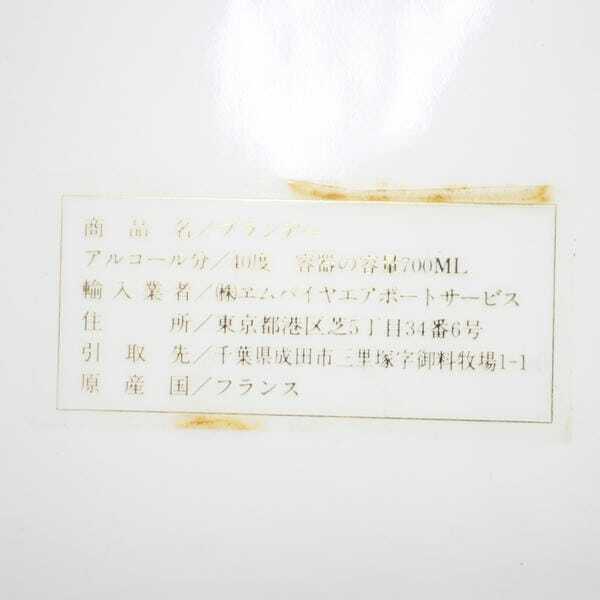 商品名/ブランデー
アルコール分/40度 容器の容量700ML
輸入業者/㈱エムパイヤエアポートサービス
住所/東京都港区芝5丁目34番6号
引取先/千葉県成田市三里塚字御料牧場1-1
原産国/フランス